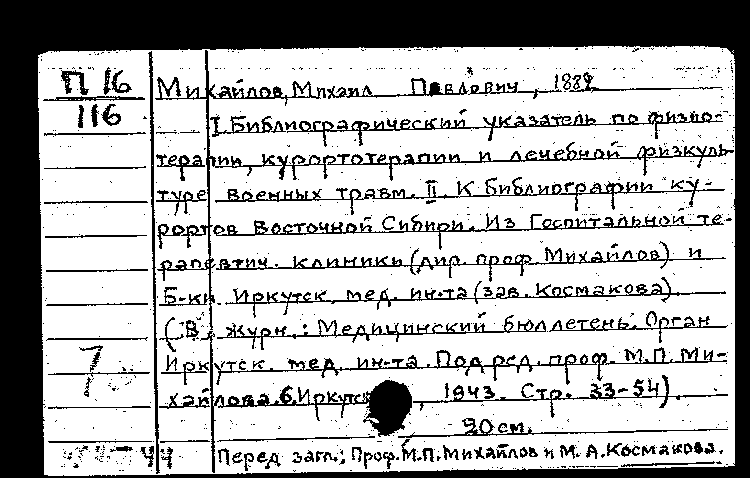 П 16
116
Михайлов, Михаил Павлович, 1889
I. Библиографический указатель по физио-
терапии, курортотерапии и лечебной физкуль
туре военных травм. II. К библиографии ку-
рортов Восточной Сибири. Из Госпитальной те-
рапевтич. клиники (дир. проф. Михайлов) и
Б-ки Иркутск. мед. ин-та (зав. Космакова).
(В журн.: Медицинский бюллетень. Орган
Иркутск. мед. ин-та. Под ред. проф. М.П. Ми-
хайлова. 6. Иркутск, 1943. Стр. 33-54).
20 см.
44
Перед загл.: Проф. М.П. Михайлов и М. А. Космакова.